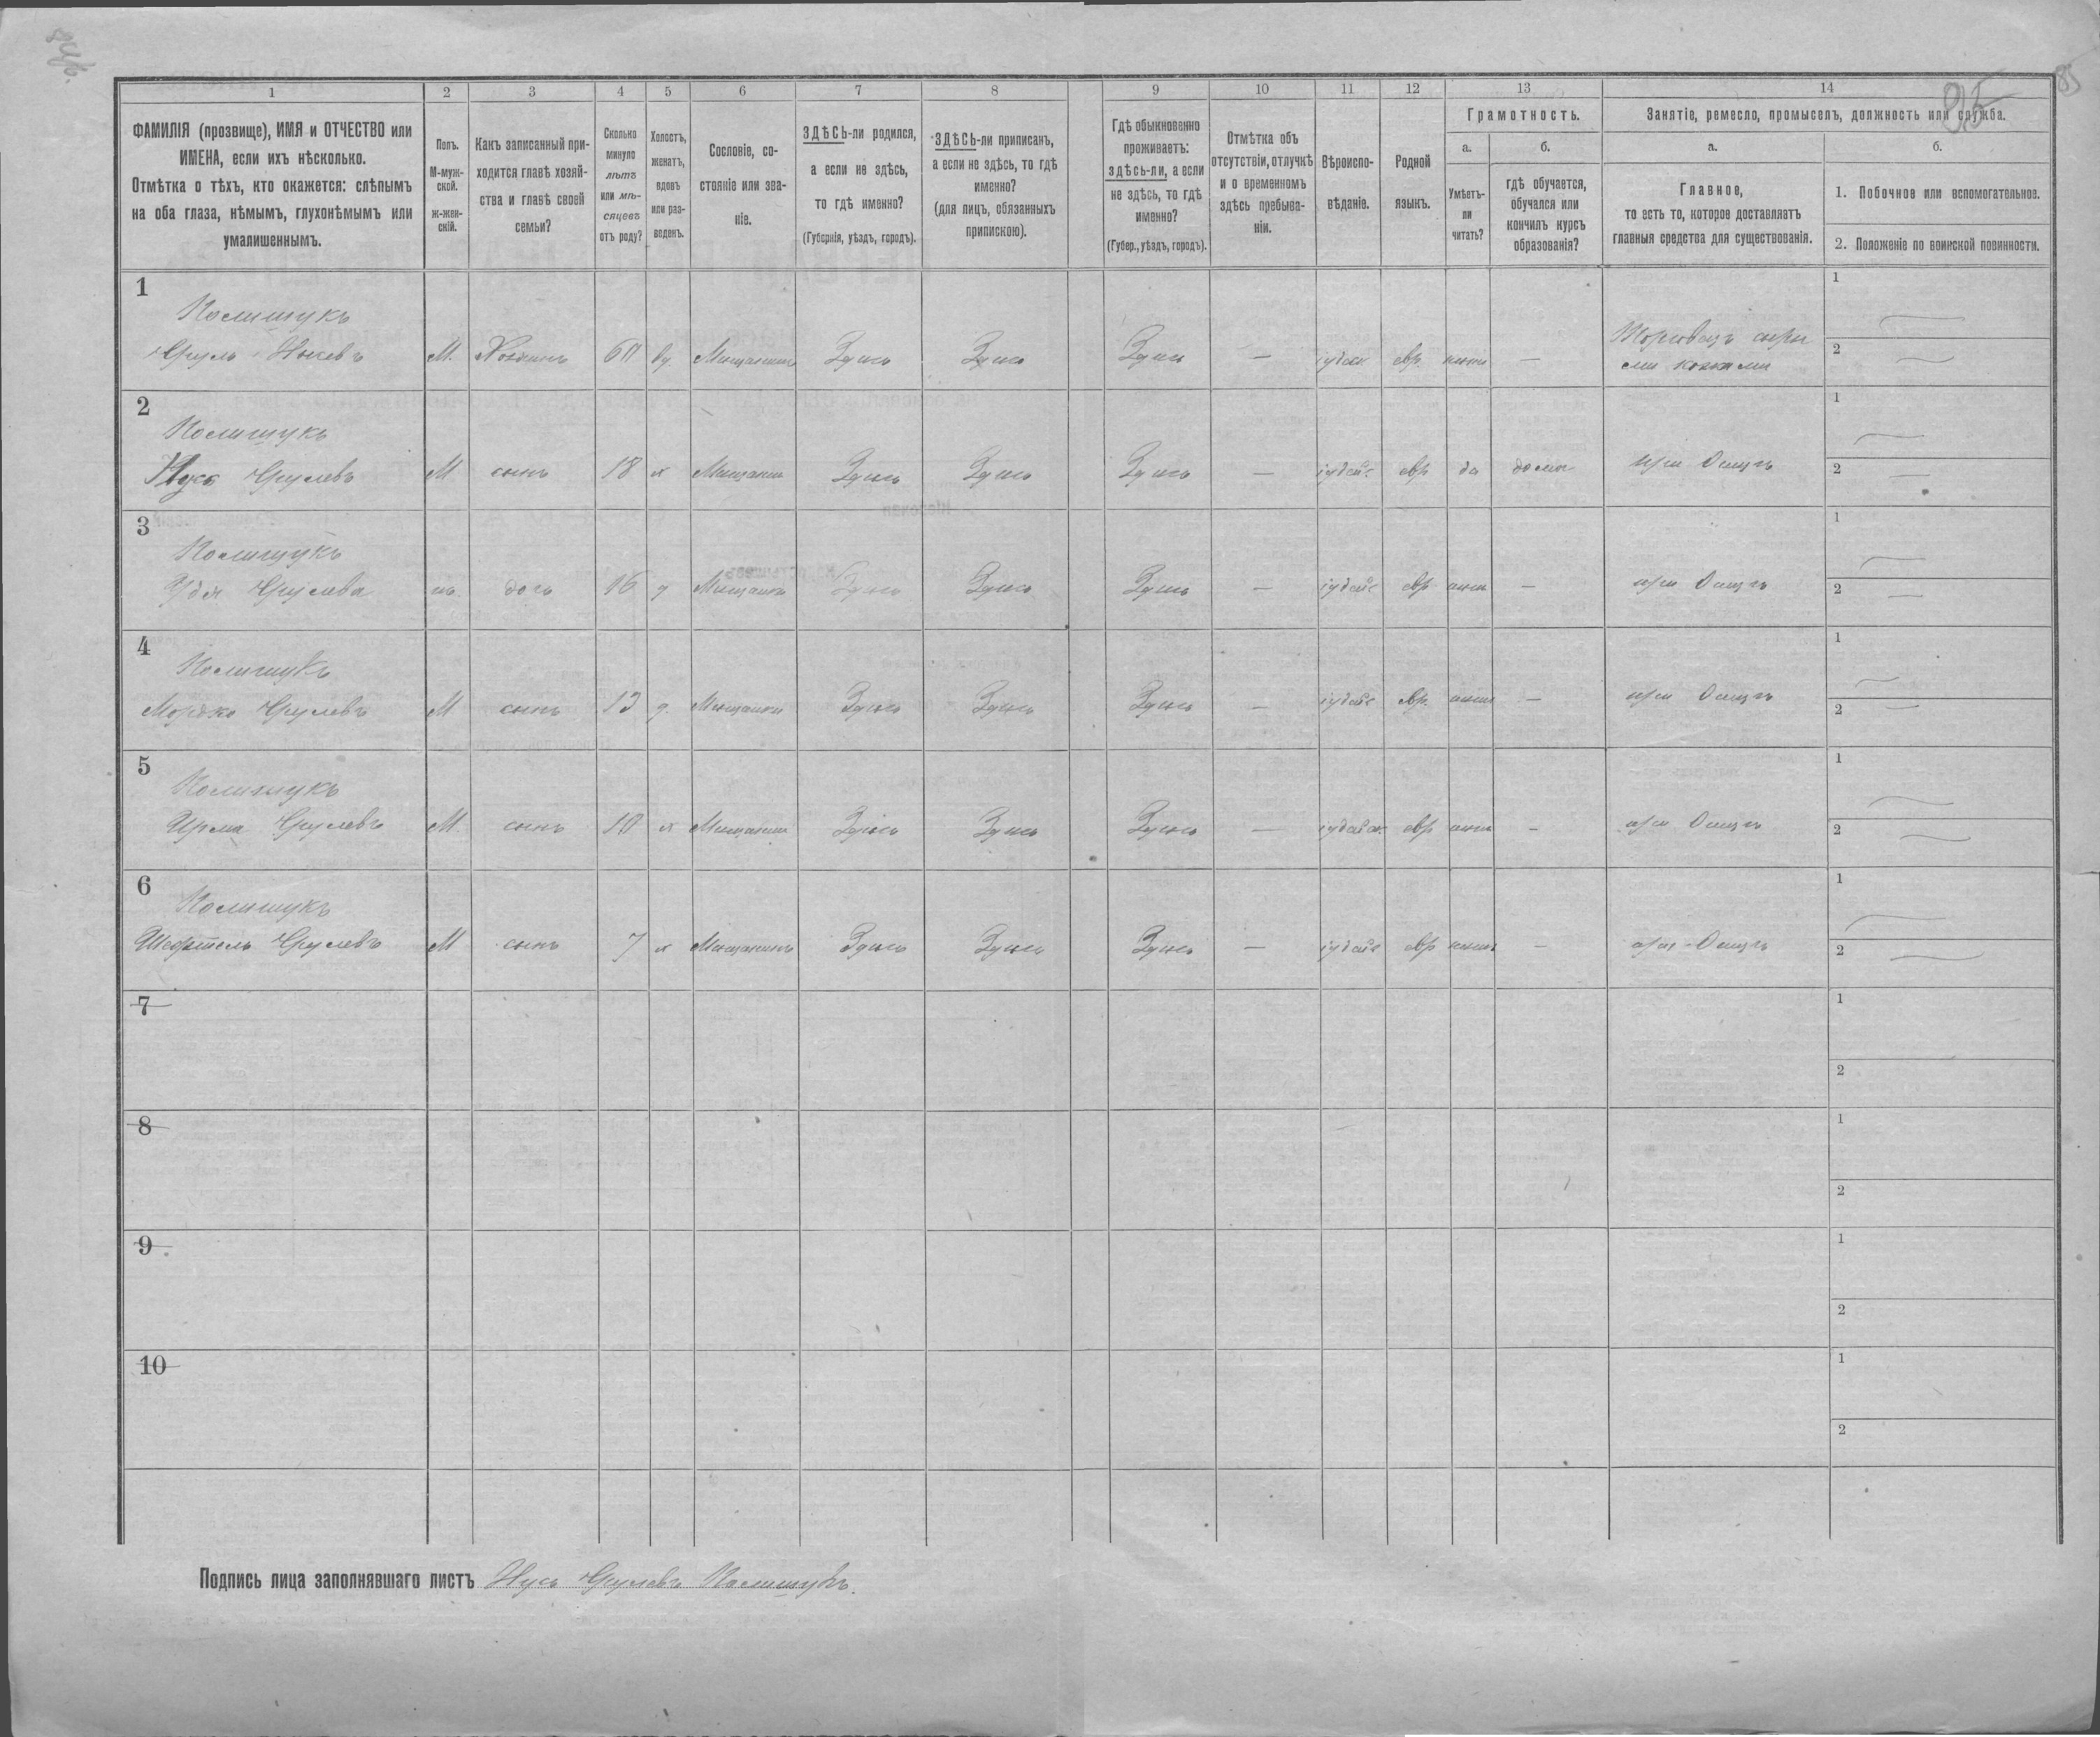 85
85
1
2
3
4
5
6
7
8
9
10
11
12
13
14
ФАМИЛІЯ (прозвище), ИМЯ и ОТЧЕСТВО или
ИМЕНА, если ихъ нѣсколько.
Отмѣтка о тѣхъ, кто окажется: слѣпымъ
на оба глаза, нѣмымъ, глухонѣмымъ или
умалишеннымъ.
Полъ.
М-муж-
ской.
ж-жен-
скій.
Какъ записанный при-
ходится главѣ хозяй-
ства и главѣ своей
семьи?
Сколько
минуло
лѣтъ
или мѣ-
сяцевъ
отъ роду?
Холостъ,
женатъ,
вдовъ
или раз-
веденъ.
Сословіе, со-
стояніе или зва-
ніе.
ЗДѢСЬ-ли родился,
а если не здѣсь,
то гдѣ именно?
(Губернія, уѣздъ, городъ).
ЗДѢСЬ-ли приписанъ,
а если не здѣсь, то гдѣ
именно?
(для лицъ, обязанныхъ
припискою).
Гдѣ обыкновенно
проживаетъ:
здѣсь-ли, а если
не здѣсь, то гдѣ
именно?
(Губер., уѣздъ, городъ).
Отмѣтка объ
отсутствіи, отлучкѣ
и о временномъ
здѣсь пребыва-
ніи.
Вѣроиспо-
вѣданіе.
Родной
языкъ.
Грамотность.
а.
Умѣетъ-
ли
читать?
б.
гдѣ обучается,
обучался или
кончилъ курсъ
образованія?
Занятіе, ремесло, промыселъ, должность или служба.
а.
Главное,
то есть то, которое доставляетъ
главныя средства для существованія.
б.
1. Побочное или вспомогательное.
2. Положеніе по воинской повинности.
1
Полищукъ
Сруль
М. Хозяинъ 60 ву. Мещанинъ Здѣсь Здѣсь Здѣсь — іудей евр. —
Торговецъ сыры
ми кожами
1
2
2
Полищукъ
Нусь Срулевъ М сынъ 18 х Мещанин Здѣсь Здѣсь Здѣсь — іудейс евр да дома при Отцѣ
1
2
3
Полищукъ
Срулева ж. дочь 16 д Мещанка Здѣсь Здѣсь Здѣсь — іудейс евр — при Отцѣ
1
2
4
Полищукъ
Мордко Срулевъ М сынъ 13 Мещанин Здѣсь Здѣсь Здѣсь — іудейс евр. — при Отцѣ
1
2
5
Полищукъ
Срулевъ М сынъ 10 х Мещанин Здѣсь Здѣсь Здѣсь — іудейск евр — при Отцѣ
1
2
6
Полищукъ
Шефтель Срулевъ М сынъ 7 х Мещанинъ Здѣсь Здѣсь Здѣсь — іудейс евр — при Отцѣ
1
2
7
1
2
8
1
2
9
1
2
10
1
2
Подпись лица заполнявшаго листъ Нусь Срулевъ Полищукъ.